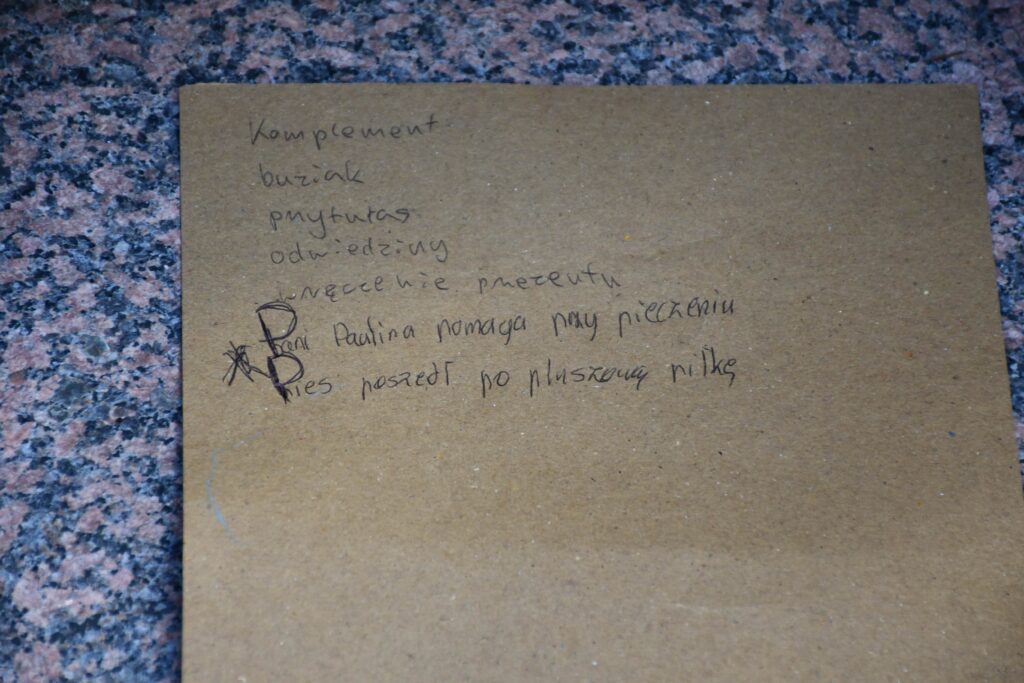 Komplement
buziak
przytulas
odwiedziny
wręczenie prezentu
Pani Paulina pomaga przy pieczeniu
Pies poszedł po pluszową piłkę